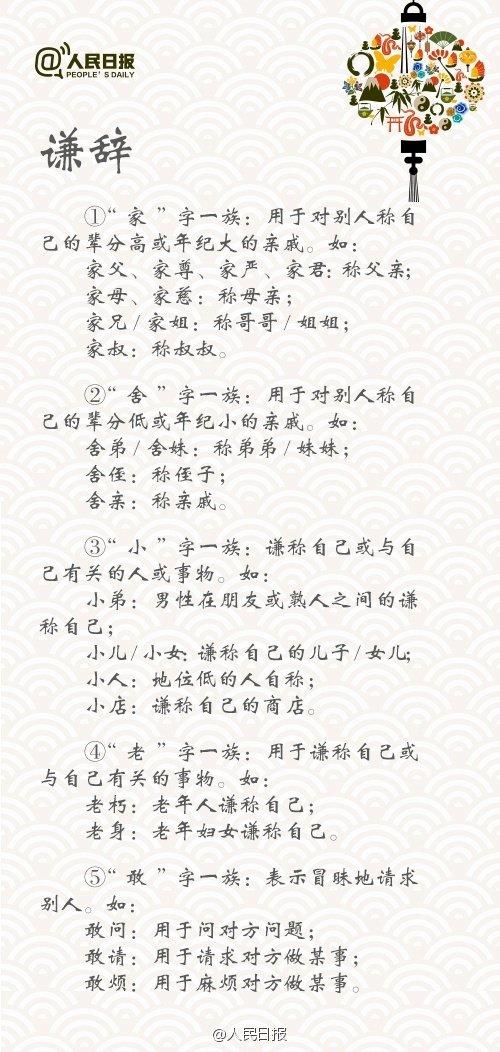 @人民日报
PEOPLE'S DAILY
谦辞
①“家”字一族：用于对别人称自
己的辈分高或年纪大的亲戚。如：
家父、家尊、家严、家君：称父亲；
家母、家慈：称母亲；
家兄/家姐：称哥哥/姐姐；
家叔：称叔叔。
②“舍”字一族：用于对别人称自
己的辈分低或年纪小的亲戚。如：
舍弟/舍妹：称弟弟/妹妹；
舍侄：称侄子；
舍亲：称亲戚。
③“小”字一族：谦称自己或与自
己有关的人或事物。如：
小弟：男性在朋友或熟人之间的谦
称自己；
小儿/小女：谦称自己的儿子/女儿；
小人：地位低的人自称；
小店：谦称自己的商店。
④“老”字一族：用于谦称自己或
与自己有关的事物。如：
老朽：老年人谦称自己；
老身：老年妇女谦称自己。
⑤“敢”字一族：表示冒昧地请求
别人。如：
敢问：用于问对方问题；
敢请：用于请求对方做某事；
敢烦：用于麻烦对方做某事。
@人民日报